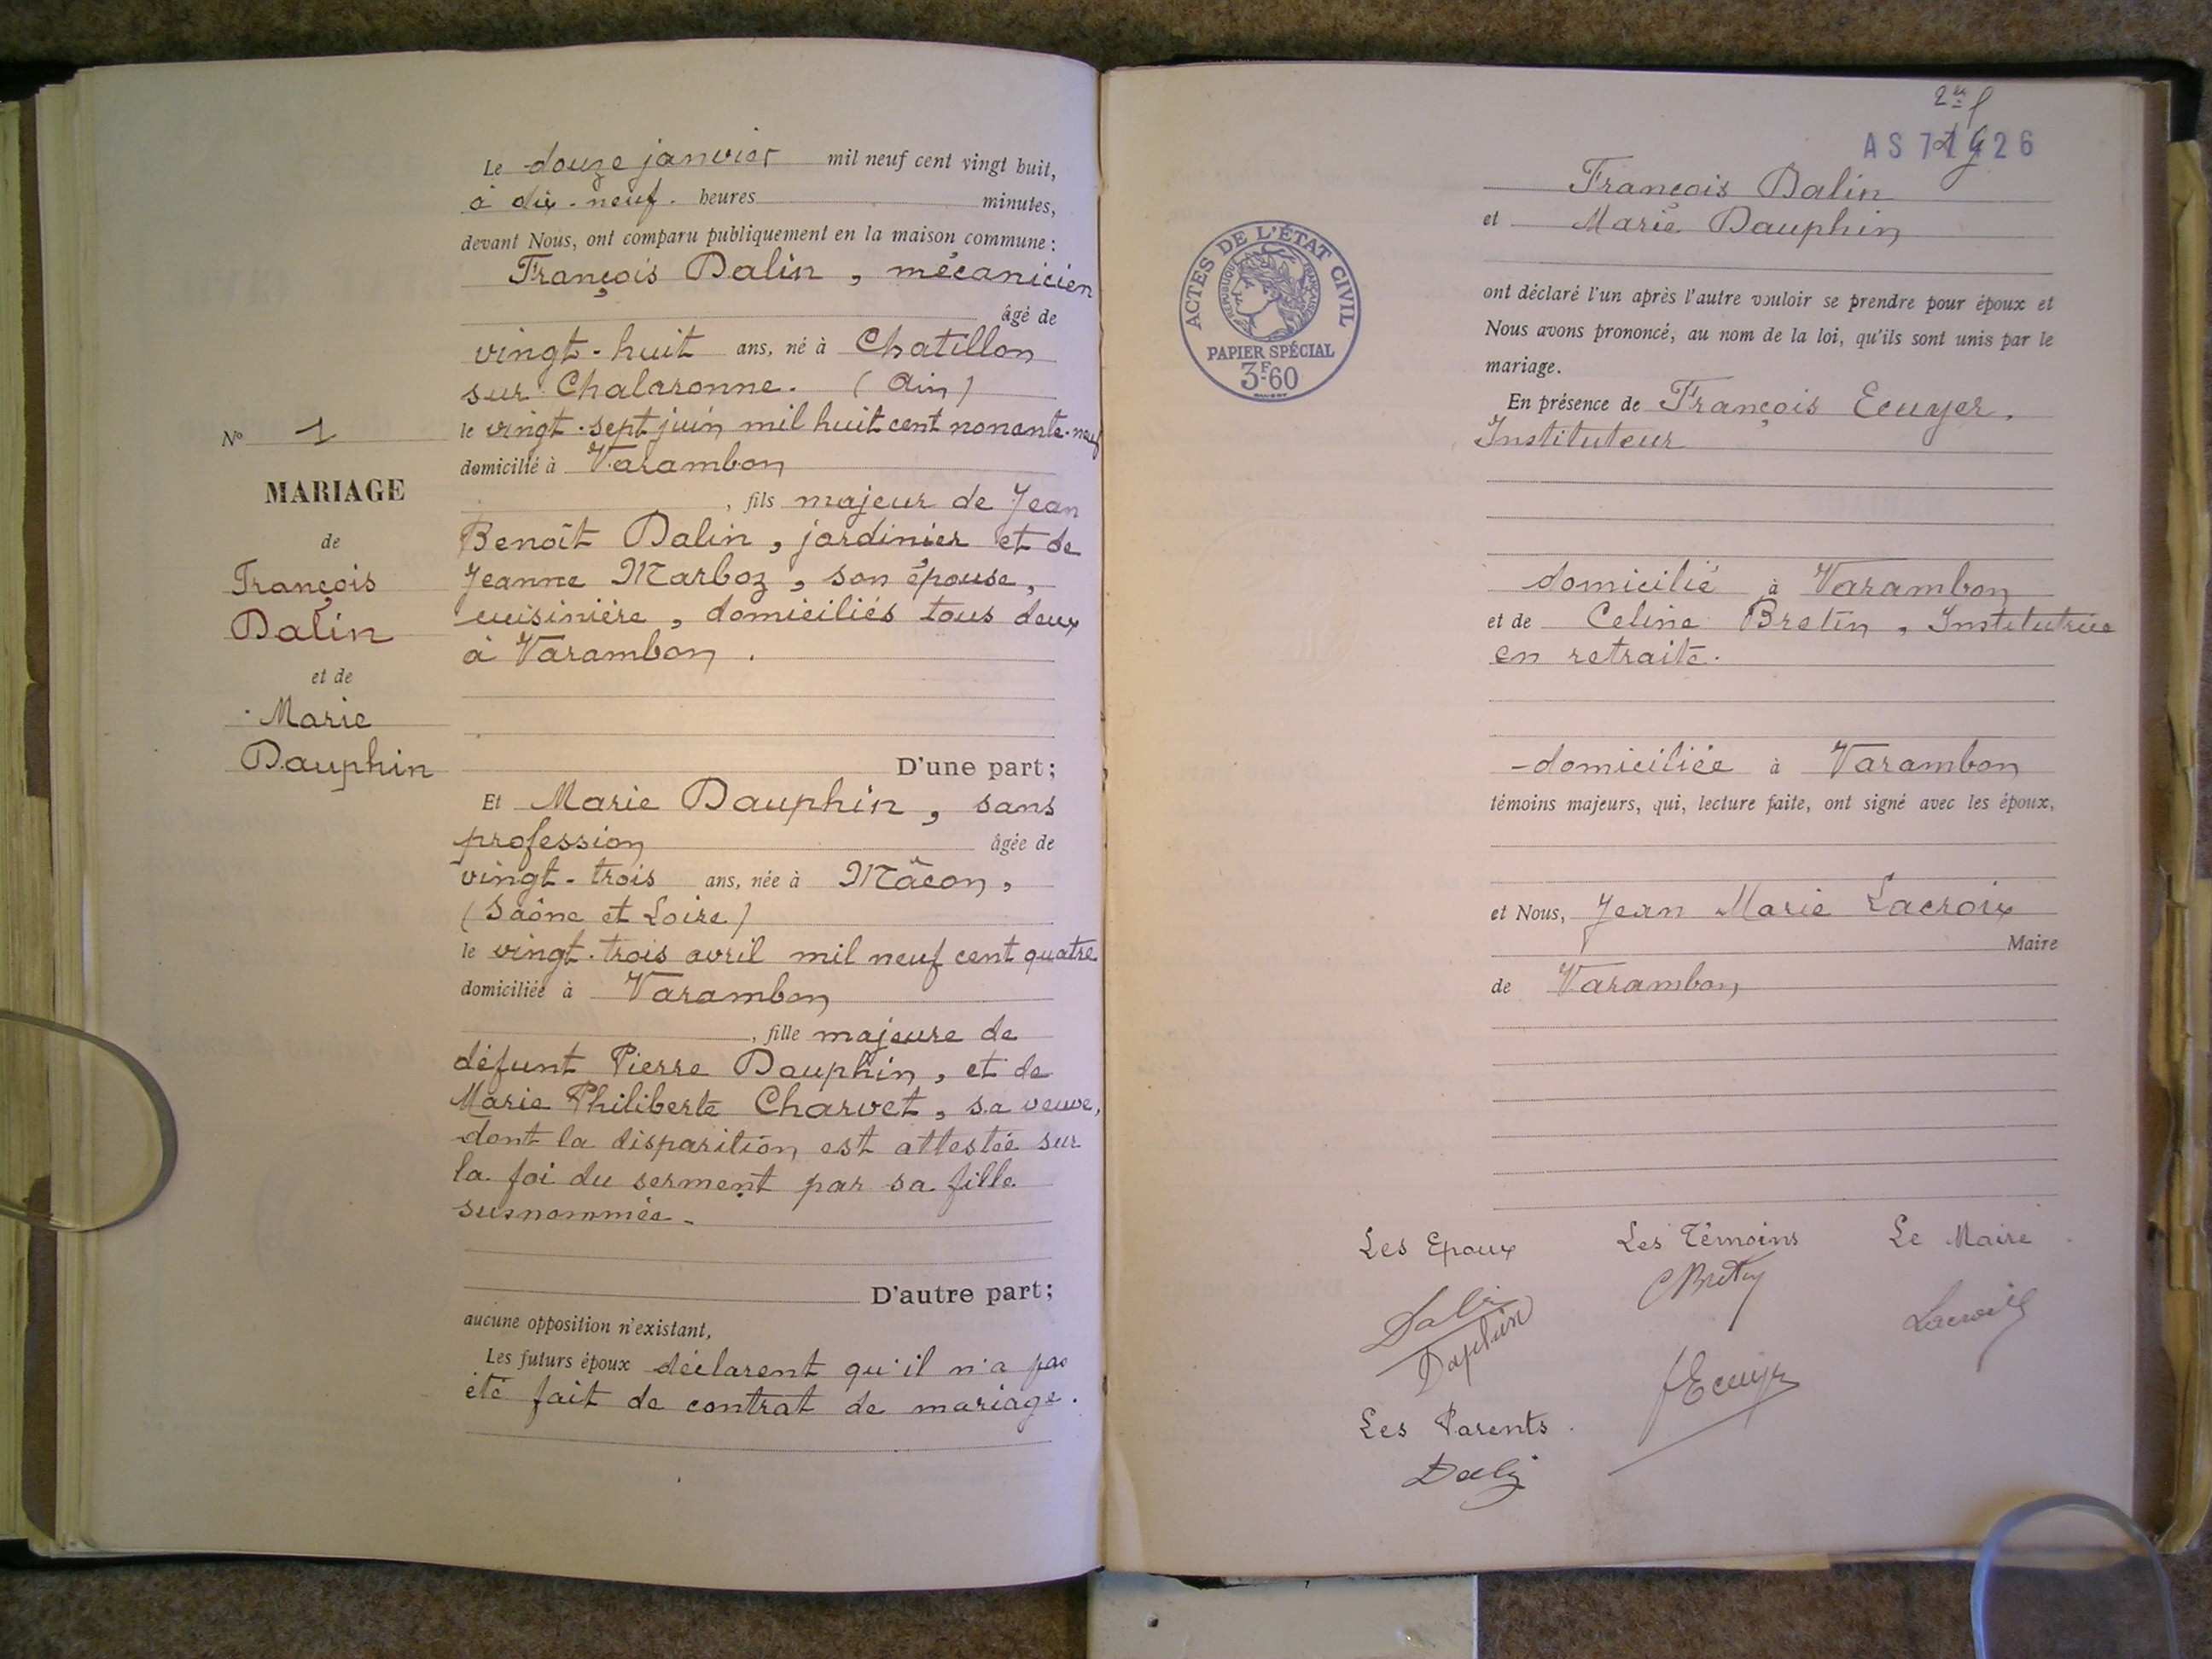 Le douze janvier mil neuf cent vingt huit,
à dix-neuf. heures minutes,
devant Nous, ont comparu publiquement en la maison commune :
François Dalin, mécanicien
âgé de
vingt-huit ans, né à Chatillon
sur Chalaronne. (Ain)
le vingt-sept juin mil huit cent nonante-neuf
domicilié à Varambon
, fils majeur de Jean
Benoît Dalin, jardinier et de
Jeanne Marboz, son épouse,
cuisinière, domiciliés tous deux
à Varambon.
D'une part;
Et Marie Dauphin, sans
profession âgée de
vingt-trois ans, née à Mâcon,
(Saône et Loire)
le vingt-trois avril mil neuf cent quatre
domiciliée à Varambon
, fille majeure de
défunt Pierre Dauphin, et de
Marie Philiberte Charvet, sa veuve,
dont la disparition est attestée sur
la foi du serment par sa fille
susnommée-
D'autre part;
aucune opposition n'existant,
Les futurs époux déclarent qu'il n'a pas
été fait de contrat de mariage.
N° 1
MARIAGE
de
François
Dalin
et de
Marie
Dauphin
AS 7 26
François Dalin
et Marie Dauphin
ont déclaré l'un après l'autre vouloir se prendre pour époux et
Nous avons prononcé, au nom de la loi, qu'ils sont unis par le
mariage.
En présence de François Ecuyer,
Instituteur
domicilié à Varambon
et de Celine Bretin, Institutrice
en retraite.
domiciliée à Varambon
témoins majeurs, qui, lecture faite, ont signé avec les époux,
et Nous, Jean Marie Lacroix
Maire
de Varambon
Les Epoux
Les Témoins
Le Maire
Dalin
Dauphin
CBretin
FEcuyer
Lacroix
Les Parents.
Dalin
ACTES DE L'ÉTAT CIVIL
RÉPUBLIQUE FRANÇAISE
PAPIER SPÉCIAL
3F60